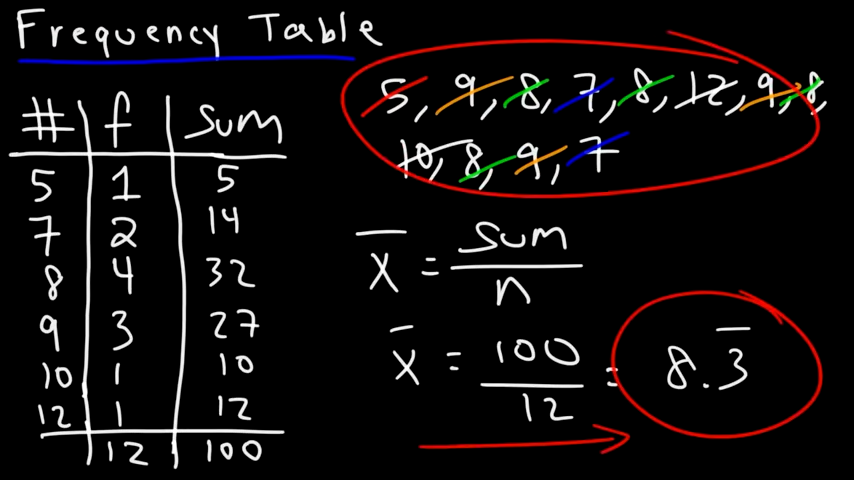 Frequency Table
# f sum
5 1 5
7 2 14
8 4 32
9 3 27
10 1 10
12 1 12
12 100
5, 9, 8, 7, 8, 12, 9, 8,
10, 8, 9, 7
x̄ = sum / n
x̄ = 100 / 12 = 8.3̅